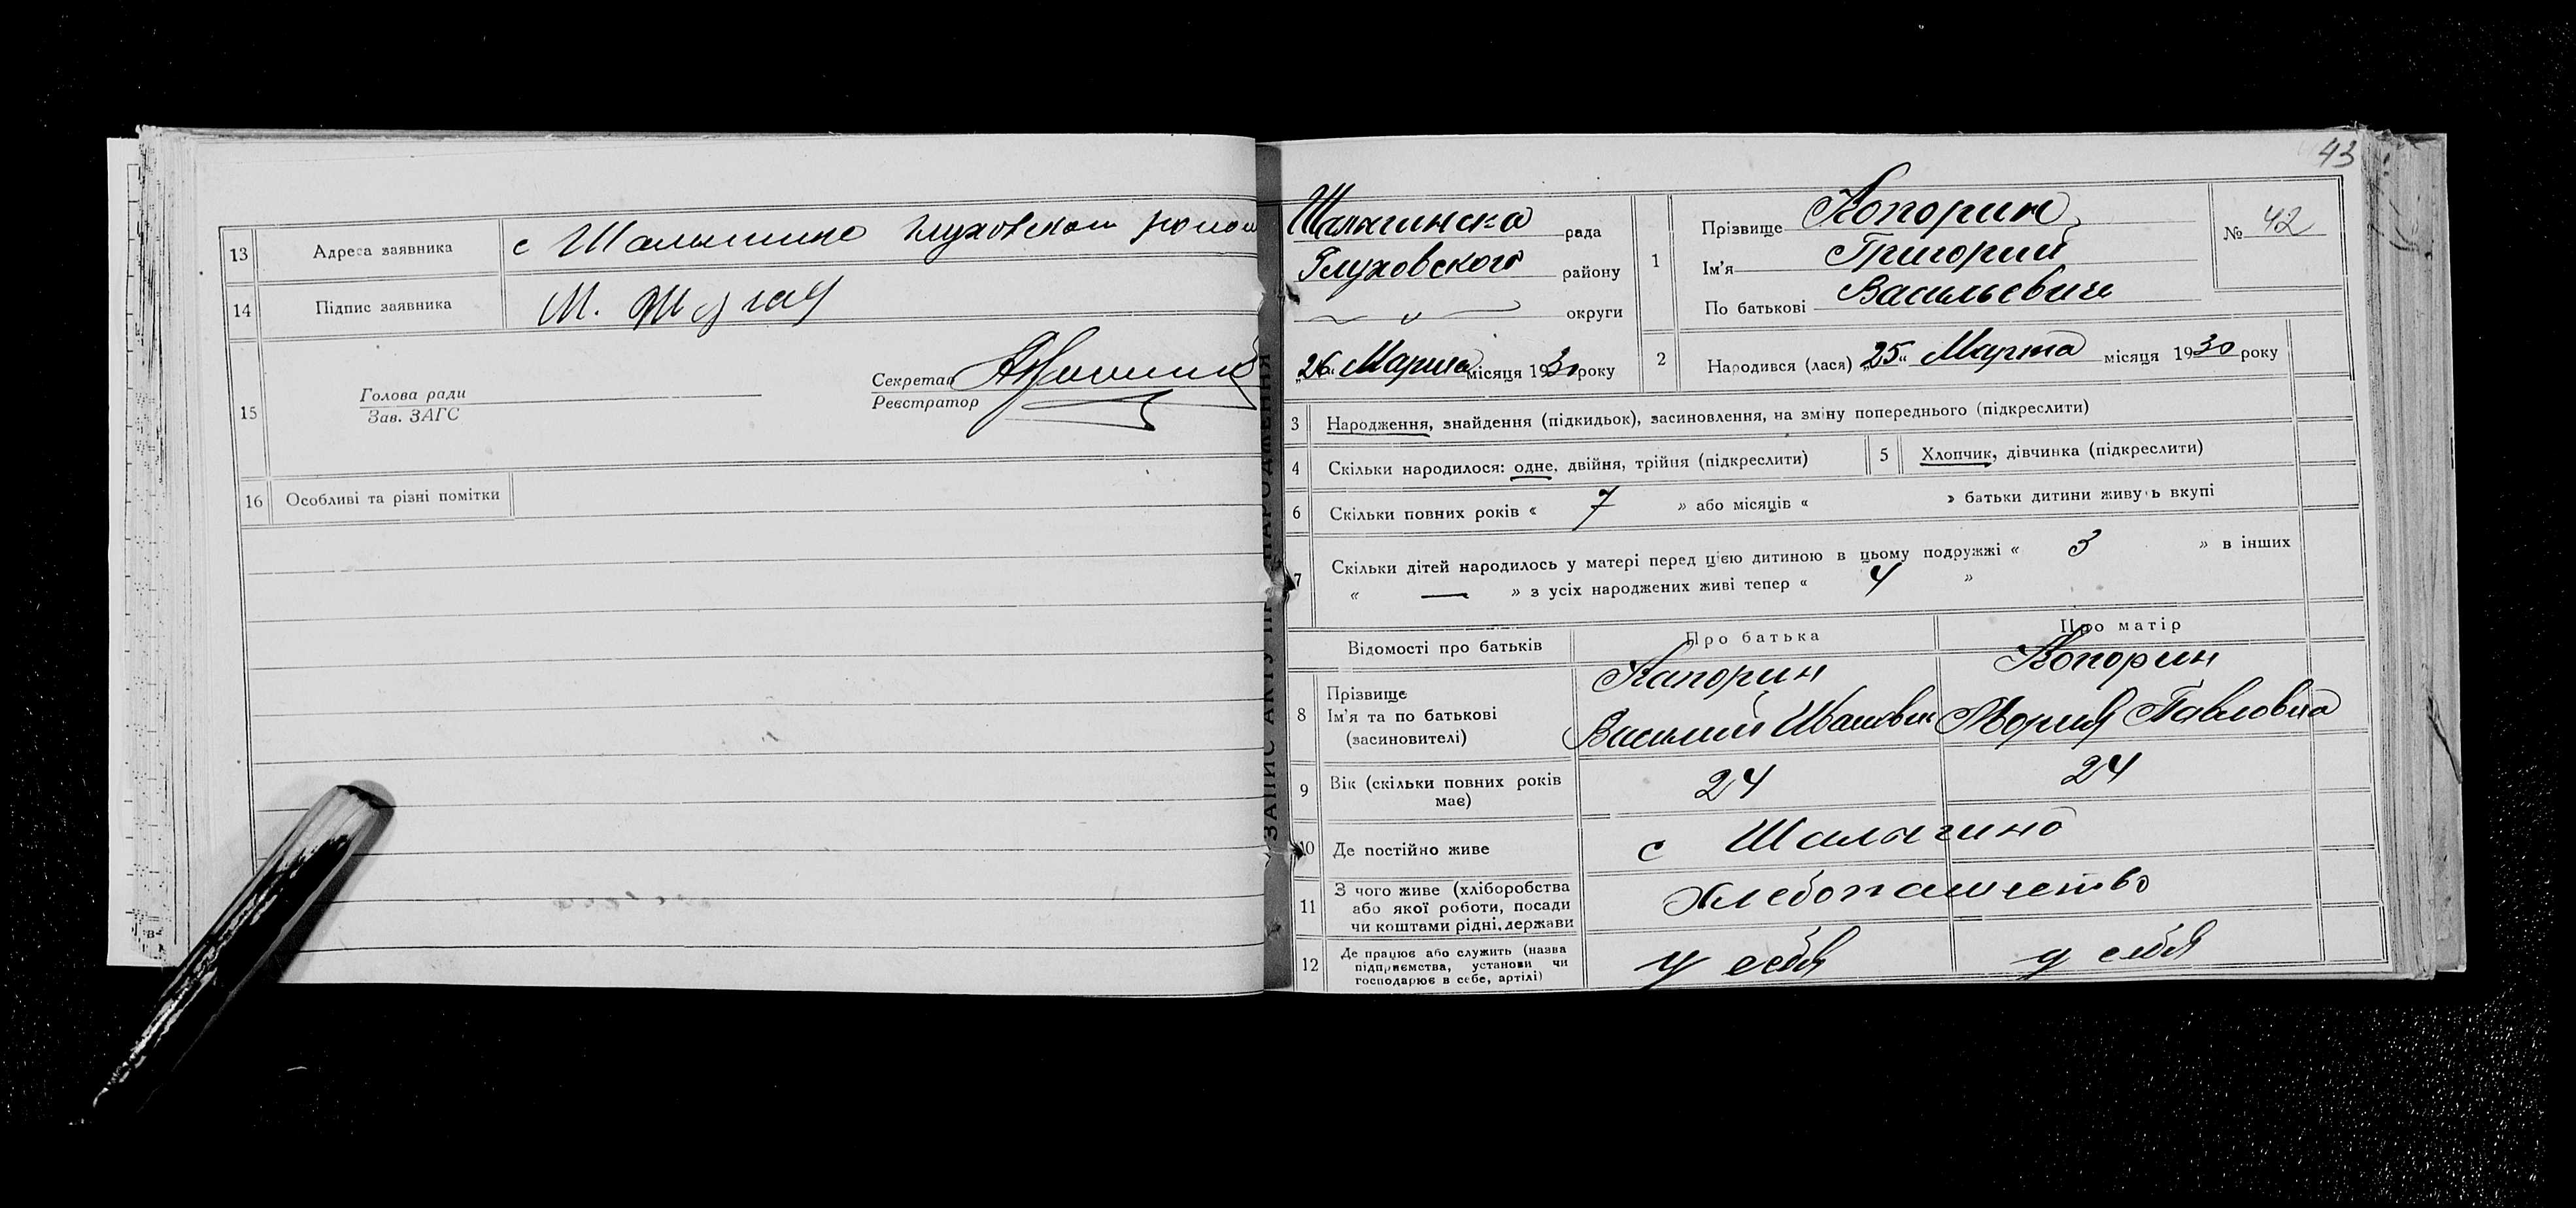 13 Адреса заявника с Шалыгино Глуховского
14 Підпис заявника М.
15 Голова ради
Зав. ЗАГС
Секретар
Реєстратор
16 Особливі та різні помітки
ЗАПИС АКТУ ПРО НАРОДЖЕННЯ
43
Шалыгинска рада
Глуховского району
— " — округи
„26“ Марта місяця 1930 року
1 Прізвище Копорин
Ім'я Григорий
По батькові Васильевич
№ 42
2 Народився (лася) „25“ Марта місяця 1930 року
3 Народження, знайдення (підкидьок), засиновлення, на зміну попереднього (підкреслити)
4 Скільки народилося: одне, двійня, трійня (підкреслити)
5 Хлопчик, дівчинка (підкреслити)
6 Скільки повних років « 7 » або місяців « » батьки дитини живуть вкупі
7 Скільки дітей народилось у матері перед цією дитиною в цьому подружжі « 3 » в інших
« — » з усіх народжених живі тепер « 4 »
Відомості про батьків Про батька Про матір
8 Прізвище
Ім'я та по батькові
(засиновителі)
Капорин
Василий Иванович
Копорин
Мория Павловна
9 Вік (скільки повних років
має)
24 24
10 Де постійно живе с Шалыгино
11 З чого живе (хліборобства
або якої роботи, посади
чи коштами рідні, держави
Хлебопашество
12 Де працює або служить (назва
підприємства, установи чи
господарює в себе, артілі)
у себя у себя